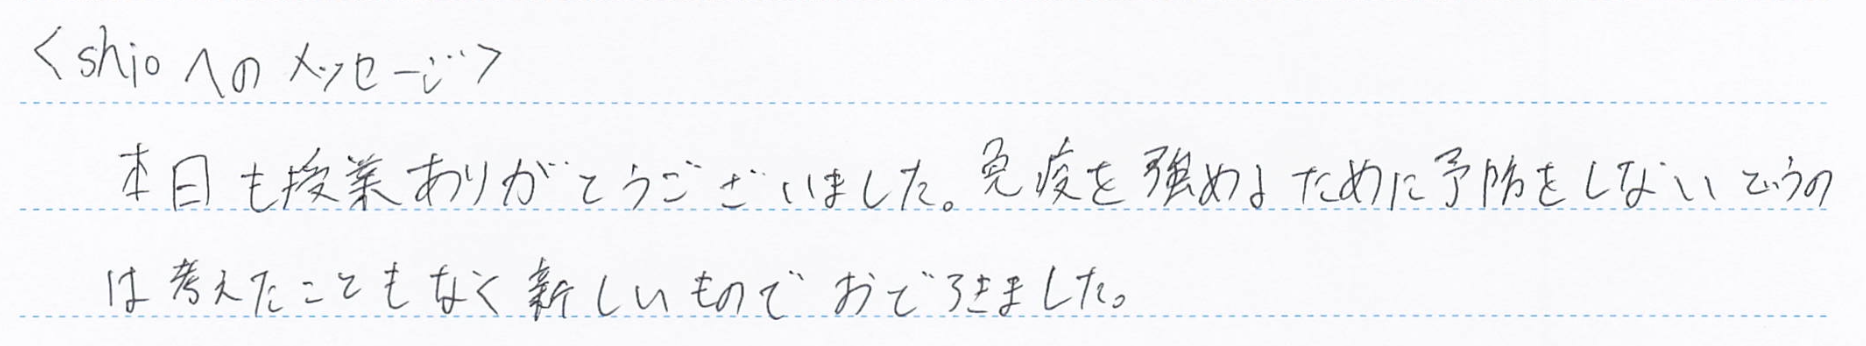 <shioへのメッセージ>
本日も授業ありがとうございました。免疫を強めるために予防をしないというの
は考えたこともなく新しいものでおどろきました。